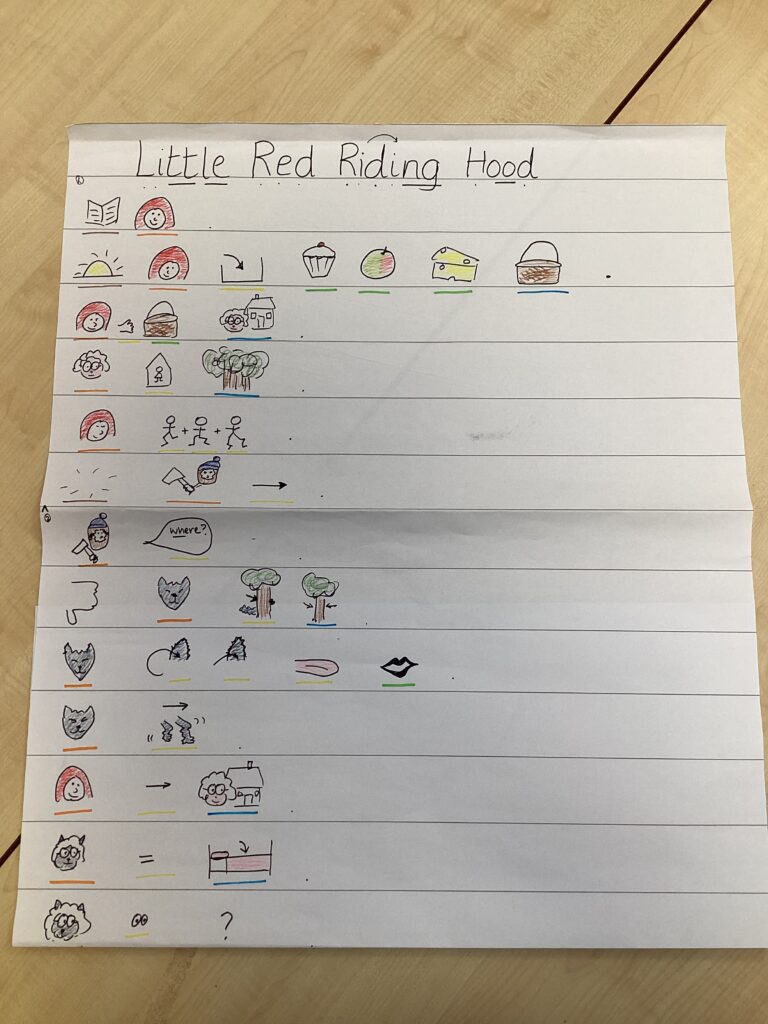 Little Red Riding Hood
where?
?